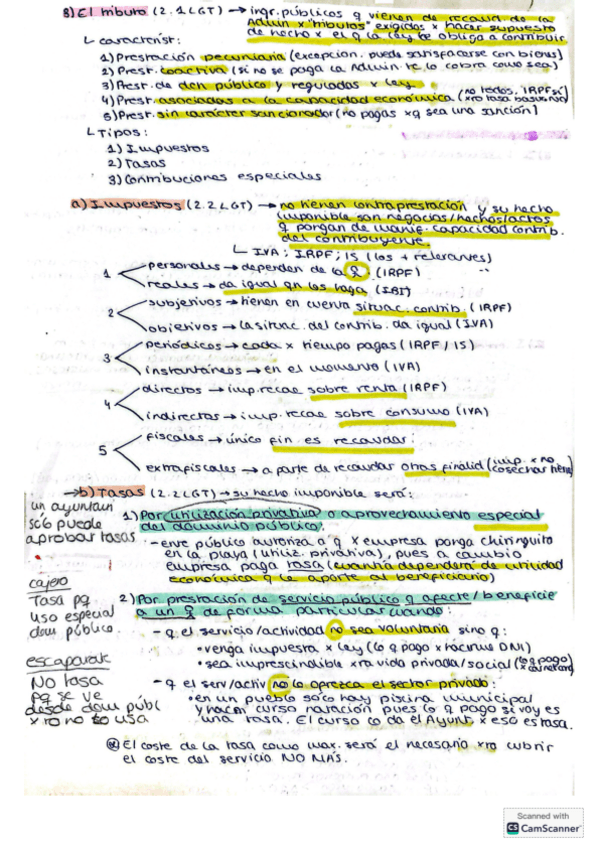 8) El tributo (2.1 LGT) → ingr. públicos q vienen de recaud. de la
Admin x "tributos" exigidos x hacer supuesto
de hecho x el q la ley te obliga a contribuir
↳ característ:
1) Prestación pecuniaria (excepcion. puede satisfacerse con bienes)
2) Prest. coactiva (si no se paga la Admin te lo cobra como sea)
3) Prest. de dcho público y reguladas x ley
4) Prest. asociadas a la capacidad económica (no todos, IRPF sí
xro tasa basuras no)
5) Prest. sin carácter sancionador (no pagas xq sea una sanción)
↳ Tipos:
1) Impuestos
2) Tasas
3) Contribuciones especiales
a) Impuestos (2.2 LGT) → no tienen contraprestación y su hecho
imponible son negocios/hechos/actos
q pongan de manif. capacidad contrib.
del contribuyente.
↳ IVA; IRPF; IS (los + relevantes)
1 personales → dependen de la (IRPF)
reales → da igual qn los haga (IBI)
2 subjetivos → tienen en cuenta situac. contrib. (IRPF)
objetivos → la situac. del contrib. da igual (IVA)
3 periódicos → cada x tiempo pagas (IRPF / IS)
instantáneos → en el momento (IVA)
4 directos → imp. recae sobre renta (IRPF)
indirectos → imp. recae sobre consumo (IVA)
5 fiscales → único fin es recaudar.
extrafiscales → a parte de recaudar otras finalid (imp. x no
cosechar
→ b) Tasas (2.2 LGT) → su hecho imponible será:
un ayuntam
sólo puede
aprobar tasas
1) Por utilización privativa o aprovechamiento especial
del dominio público.
- ente público autoriza a q x empresa ponga chiringuito
en la playa (utiliz. privativa), pues a cambio
empresa paga tasa (cuantía dependerá de utilidad
económica q le aporte al beneficiario)
cajero
Tasa pq
uso especial
dom público
2) Por prestación de servicio público q afecte/beneficie
a un de forma particular cuando:
- q el servicio/actividad no sea voluntaria sino q:
• venga impuesta x ley (lo q pago x hacerme DNI)
• sea imprescindible xra vida privada/social (lo q pago
escaparate
NO tasa
pq se ve
desde dom públ
xro no to usa
- q el serv/activ no lo ofrezca el sector privado:
• en un pueblo solo hay piscina municipal
y hacen curso natación pues lo q pago si voy es
una tasa. El curso lo da el Ayunt x eso es tasa.
El coste de la tasa como max. será el necesario xra cubrir
el coste del servicio NO MÁS.
Scanned with
CS CamScanner